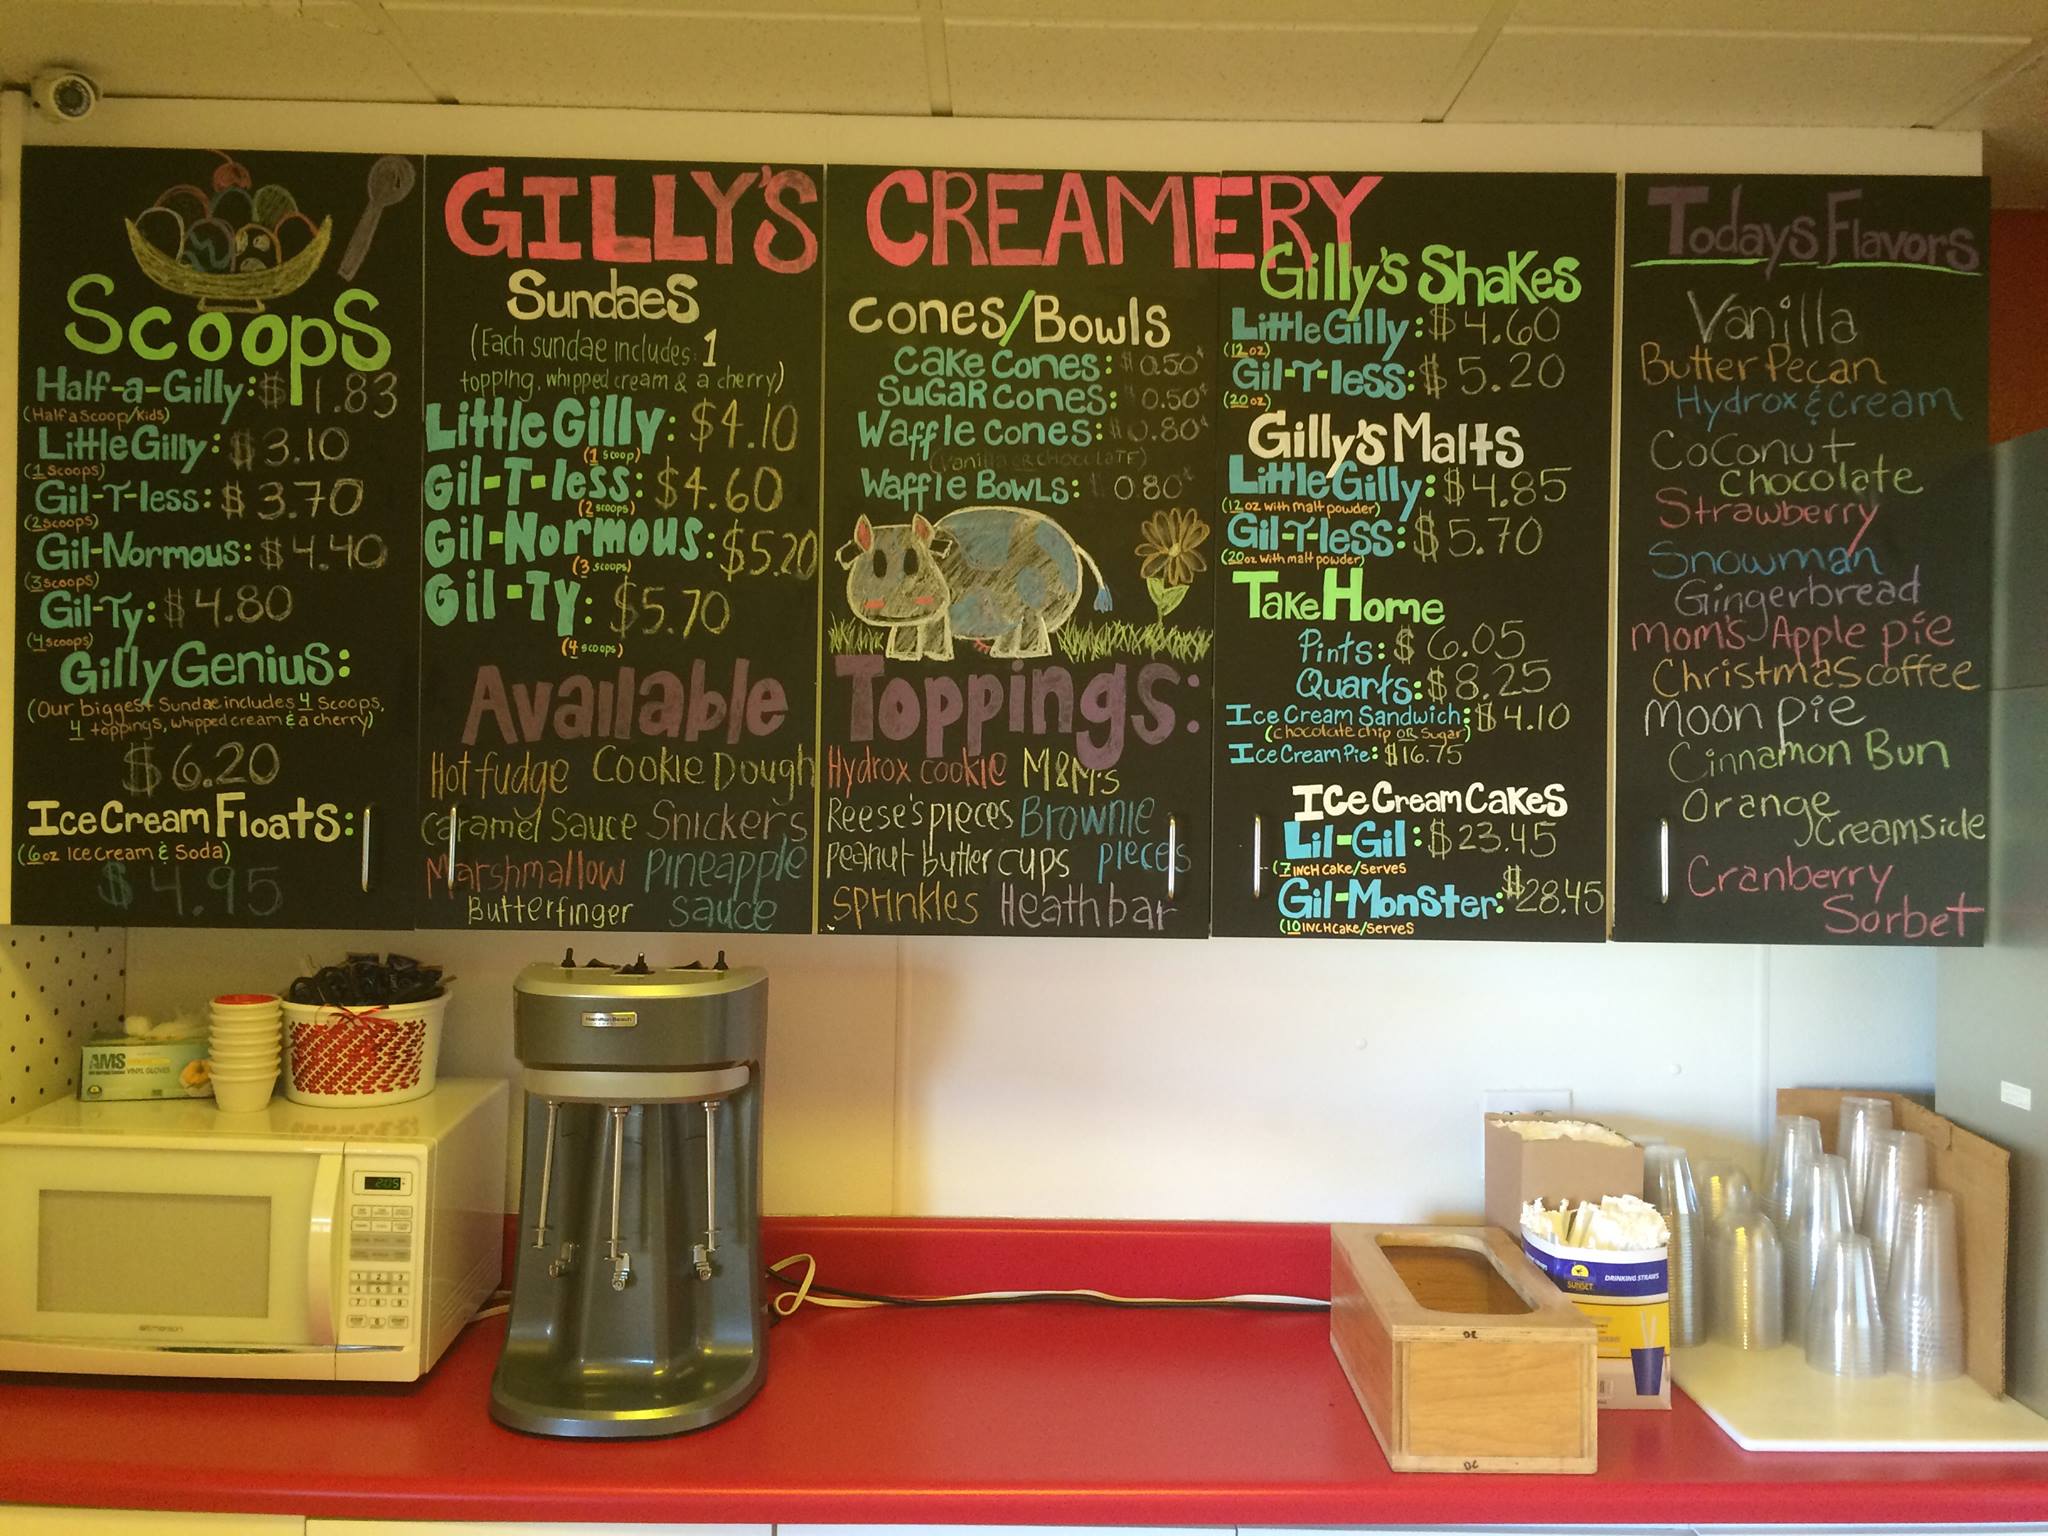 GILLY'S CREAMERY
Scoops
Half-a-Gilly: $1.83
(Half a scoop/kids)
Little Gilly: $3.10
(1 scoops)
Gil-T-less: $3.70
(2 scoops)
Gil-Normous: $4.40
(3 scoops)
Gil-Ty: $4.80
(4 scoops)
Gilly Genius:
(Our biggest Sundae includes 4 Scoops,
4 toppings, whipped cream & a cherry)
$6.20
Ice Cream Floats:
(6oz Ice Cream & Soda)
$4.95
Sundaes
(Each sundae includes: 1
topping, whipped cream & a cherry)
Little Gilly: $4.10
(1 scoop)
Gil-T-less: $4.60
(2 scoops)
Gil-Normous: $5.20
(3 scoops)
Gil-Ty: $5.70
(4 scoops)
Cones/Bowls
Cake Cones: $0.50¢
Sugar Cones: $0.50¢
Waffle Cones: $0.80¢
(Vanilla or Chocolate)
Waffle Bowls: $0.80¢
Available Toppings:
Hot fudge Cookie Dough
Caramel Sauce Snickers
Marshmallow Pineapple
Butterfinger Sauce
Hydrox cookie M&M's
Reese's pieces Brownie
peanut butter cups pieces
Sprinkles Heath bar
Gilly's Shakes
Little Gilly: $4.60
(12 oz)
Gil-T-less: $5.20
(20 oz)
Gilly's Malts
Little Gilly: $4.85
(12 oz with malt powder)
Gil-T-less: $5.70
(20 oz with malt powder)
Take Home
Pints: $6.05
Quarts: $8.25
Ice Cream Sandwich: $4.10
(chocolate chip OR Sugar)
Ice Cream Pie: $16.75
Ice Cream Cakes
Lil-Gil: $23.45
(7 INCH cake/serves
Gil-Monster: $28.45
(10 INCH cake/serves
Todays Flavors
Vanilla
Butter Pecan
Hydrox & Cream
Coconut
Chocolate
Strawberry
Snowman
Gingerbread
Mom's Apple pie
Christmas coffee
Moon pie
Cinnamon Bun
Orange
Creamsicle
Cranberry
Sorbet
AMS
VINYL GLOVES
Hamilton Beach
2:05
EMERSON
SUNSET
DRINKING STRAWS